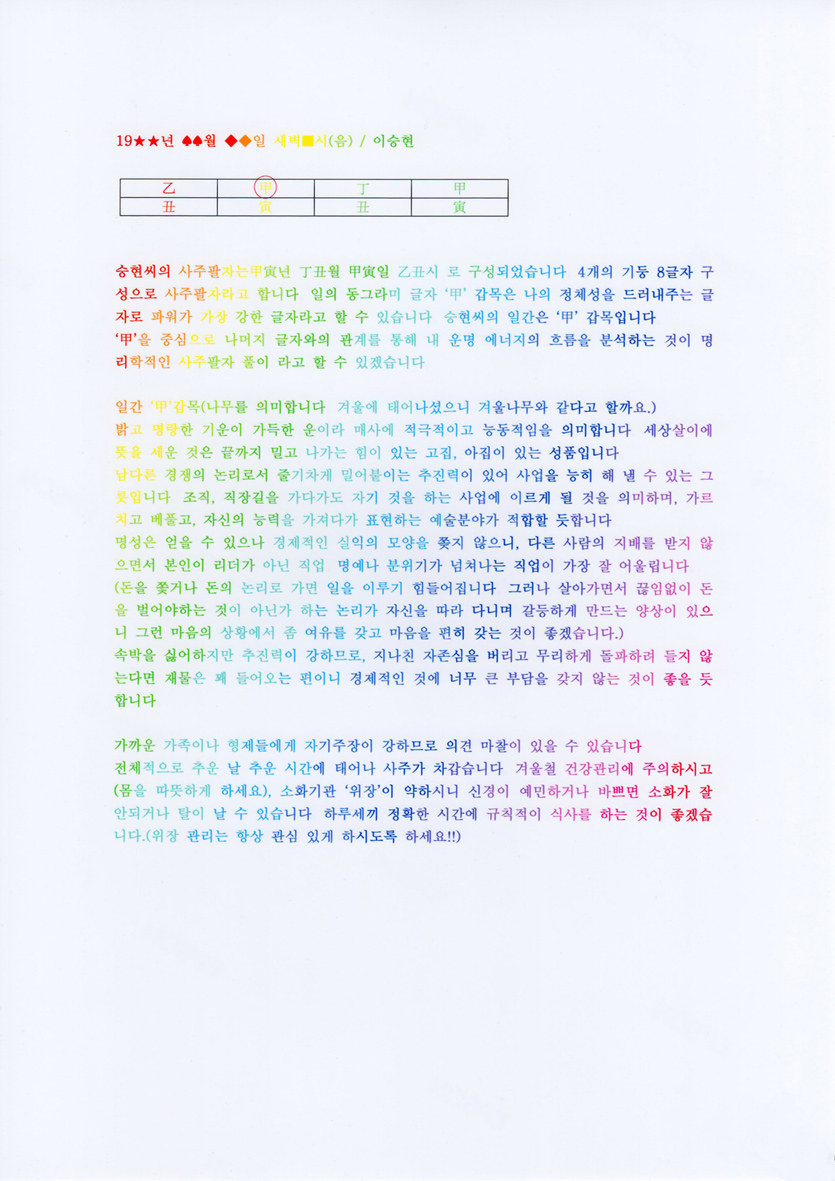 19★★년 ♠♠월 ◆◆일 새벽■시(음) / 이승현
乙 甲 丁 甲
丑 寅 丑 寅
승현씨의 사주팔자는甲寅년 丁丑월 甲寅일 乙丑시 로 구성되었습니다 4개의 기둥 8글자 구
성으로 사주팔자라고 합니다 일의 동그라미 글자 ‘甲’ 갑목은 나의 정체성을 드러내주는 글
자로 파워가 가장 강한 글자라고 할 수 있습니다 승현씨의 일간은 ‘甲’ 갑목입니다
‘甲’을 중심으로 나머지 글자와의 관계를 통해 내 운명 에너지의 흐름을 분석하는 것이 명
리학적인 사주팔자 풀이 라고 할 수 있겠습니다
일간 ‘甲’갑목(나무를 의미합니다 겨울에 태어나셨으니 겨울나무와 같다고 할까요.)
밝고 명랑한 기운이 가득한 운이라 매사에 적극적이고 능동적임을 의미합니다 세상살이에
뜻을 세운 것은 끝까지 밀고 나가는 힘이 있는 고집, 아집이 있는 성품입니다
남다른 경쟁의 논리로서 줄기차게 밀어붙이는 추진력이 있어 사업을 능히 해 낼 수 있는 그
릇입니다 조직, 직장길을 가다가도 자기 것을 하는 사업에 이르게 될 것을 의미하며, 가르
치고 베풀고, 자신의 능력을 가져다가 표현하는 예술분야가 적합할 듯합니다
명성은 얻을 수 있으나 경제적인 실익의 모양을 쫒지 않으니, 다른 사람의 지배를 받지 않
으면서 본인이 리더가 아닌 직업 명예나 분위기가 넘쳐나는 직업이 가장 잘 어울립니다
(돈을 쫓거나 돈의 논리로 가면 일을 이루기 힘들어집니다 그러나 살아가면서 끊임없이 돈
을 벌어야하는 것이 아닌가 하는 논리가 자신을 따라 다니며 갈등하게 만드는 양상이 있으
니 그런 마음의 상황에서 좀 여유를 갖고 마음을 편히 갖는 것이 좋겠습니다.)
속박을 싫어하지만 추진력이 강하므로, 지나친 자존심을 버리고 무리하게 돌파하려 들지 않
는다면 재물은 꽤 들어오는 편이니 경제적인 것에 너무 큰 부담을 갖지 않는 것이 좋을 듯
합니다
가까운 가족이나 형제들에게 자기주장이 강하므로 의견 마찰이 있을 수 있습니다
전체적으로 추운 날 추운 시간에 태어나 사주가 차갑습니다 겨울철 건강관리에 주의하시고
(몸을 따뜻하게 하세요), 소화기관 ‘위장’이 약하시니 신경이 예민하거나 바쁘면 소화가 잘
안되거나 탈이 날 수 있습니다 하루세끼 정확한 시간에 규칙적이 식사를 하는 것이 좋겠습
니다.(위장 관리는 항상 관심 있게 하시도록 하세요!!)